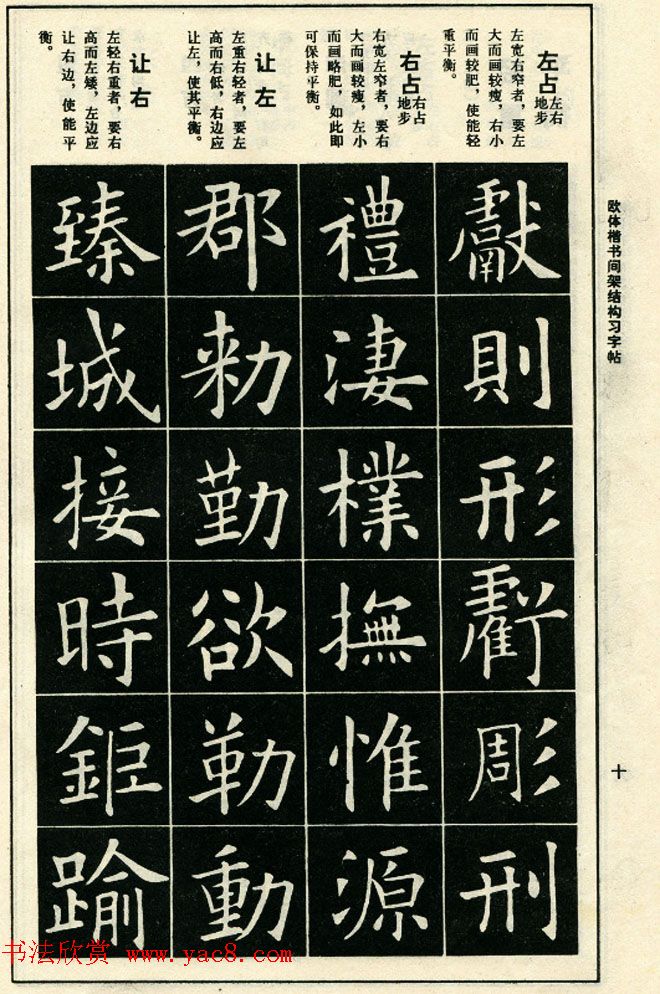 欧体楷书间架结构习字帖
十
左占
左右
地步
左宽右窄者,要左
大而画较瘦,右小
而画较肥,使能轻
重平衡。
獻則形虧彫刑
右占
右占
地步
右宽左窄者,要右
大而画较瘦,左小
而画略肥,如此即
可保持平衡。
禮淒樸撫惟源
让左
左重右轻者,要左
高而右低,右边应
让左,使其平衡。
郡勑勤欲勒動
让右
左轻右重者,要右
高而左矮,左边应
让右边,使能平
衡。
臻城接時鉅踰
书法欣赏 www.yac8.com